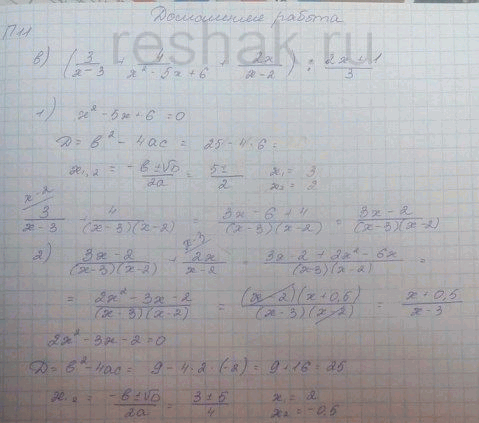 Домашняя работа
П11
reshak.ru
в) (3/(x-3) + 4/(x²-5x+6) + 2x/(x-2)) : (2x+1)/3
1) x²-5x+6=0
D=в²-4ac = 25-4·6=
x₁,₂ = (-в±√D)/2a = 5±/2 x₁= 3
x₂= 2
x-2/ 3/(x-3) + 4/((x-3)(x-2)) = (3x-6+4)/((x-3)(x-2)) = (3x-2)/((x-3)(x-2))
2) (3x-2)/((x-3)(x-2)) + x-3/ 2x/(x-2) = (3x-2+2x²-6x)/((x-3)(x-2)) =
= (2x²-3x-2)/((x-3)(x-2)) = ((x-2)(x+0,5))/((x-3)(x-2)) = (x+0,5)/(x-3)
2x²-3x-2=0
D=в²-4ac= 9-4·2·(-2)= 9+16=25
x₁,₂ = (-в±√D)/2a = (3±5)/4 x₁= 2
x₂= -0,5